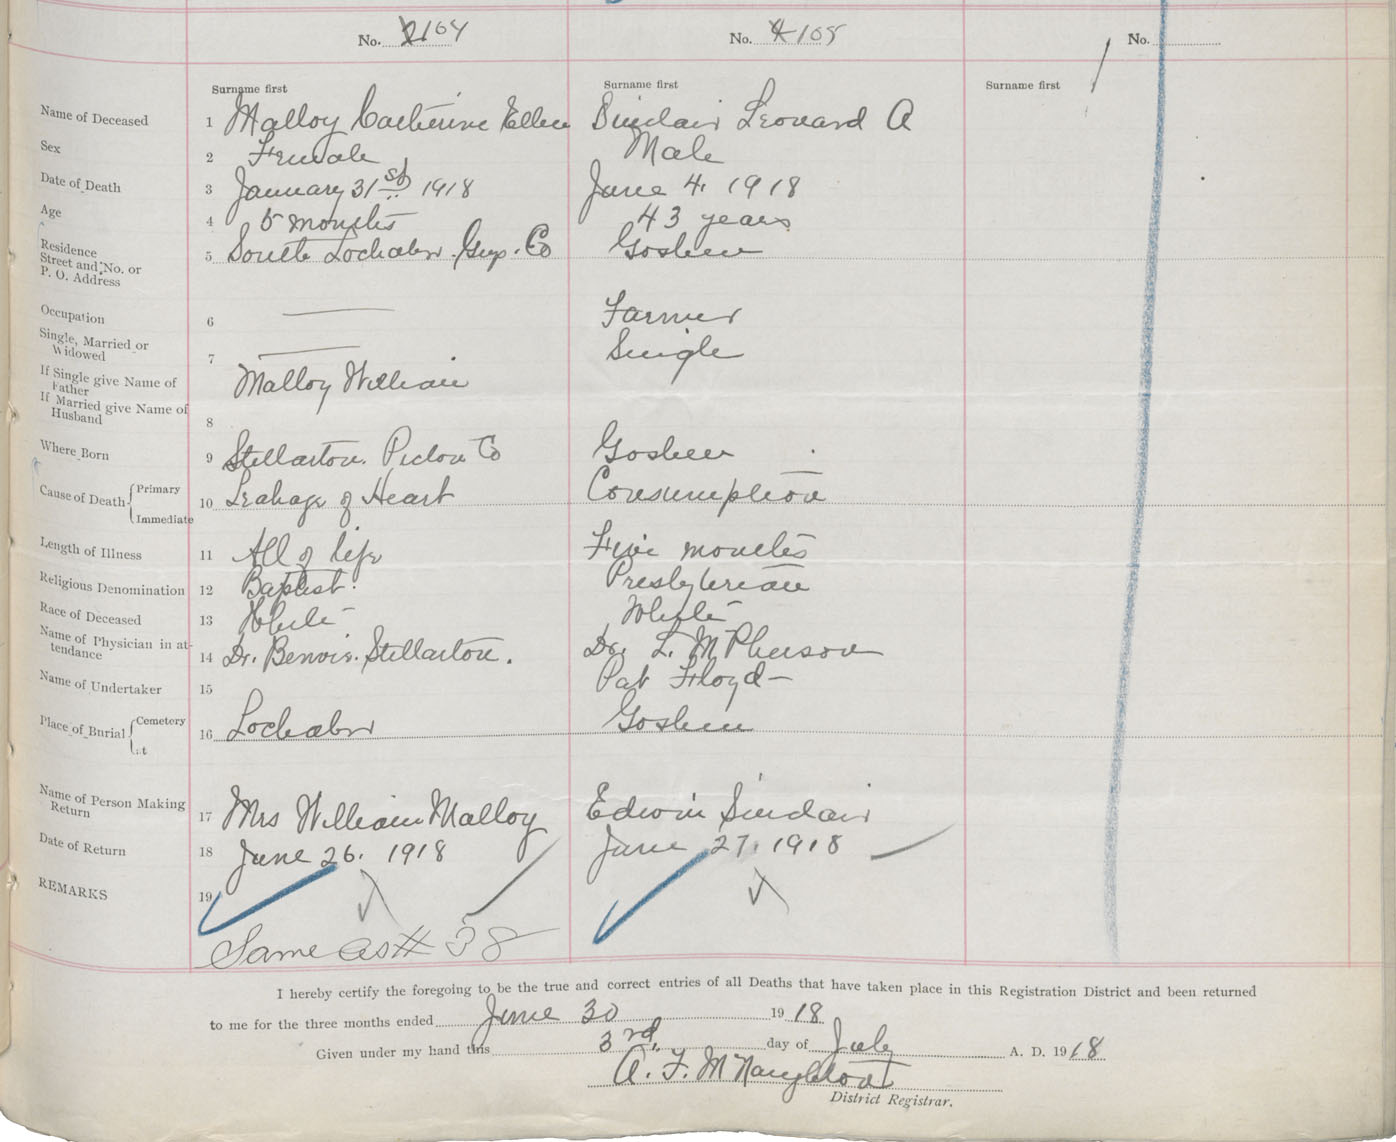 No. 2104 No. 4105 No.
Surname first Surname first Surname first
Name of Deceased 1 Malloy Catherine Ellen Sinclair Leonard A
Sex 2 Female Male
Date of Death 3 January 31st 1918 June 4. 1918
Age 4 5 months 43 years
Residence Street and No. or P. O. Address 5 South Lochaber. Guys. Co Goshen
Occupation 6 Farmer
Single, Married or Widowed 7 Single
If Single give Name of Father Malloy William
If Married give Name of Husband 8
Where Born 9 Stellarton. Pictou Co Goshen
Cause of Death Primary 10 Leakage of Heart Consumption
Immediate
Length of Illness 11 All of life Five months
Religious Denomination 12 Baptist. Presbyterian
Race of Deceased 13 White White
Name of Physician in attendance 14 Dr. Benvie. Stellarton. Dr. L. McPherson
Name of Undertaker 15 Pat Floyd
Place of Burial Cemetery 16 Lochaber Goshen
Name of Person Making Return 17 Mrs William Malloy Edwin Sinclair
Date of Return 18 June 26. 1918 June 27. 1918
REMARKS 19
Same as # 38
I hereby certify the foregoing to be the true and correct entries of all Deaths that have taken place in this Registration District and been returned
to me for the three months ended June 30 1918
Given under my hand this 3rd. day of July A. D. 1918
A. F. McNaughton
District Registrar.